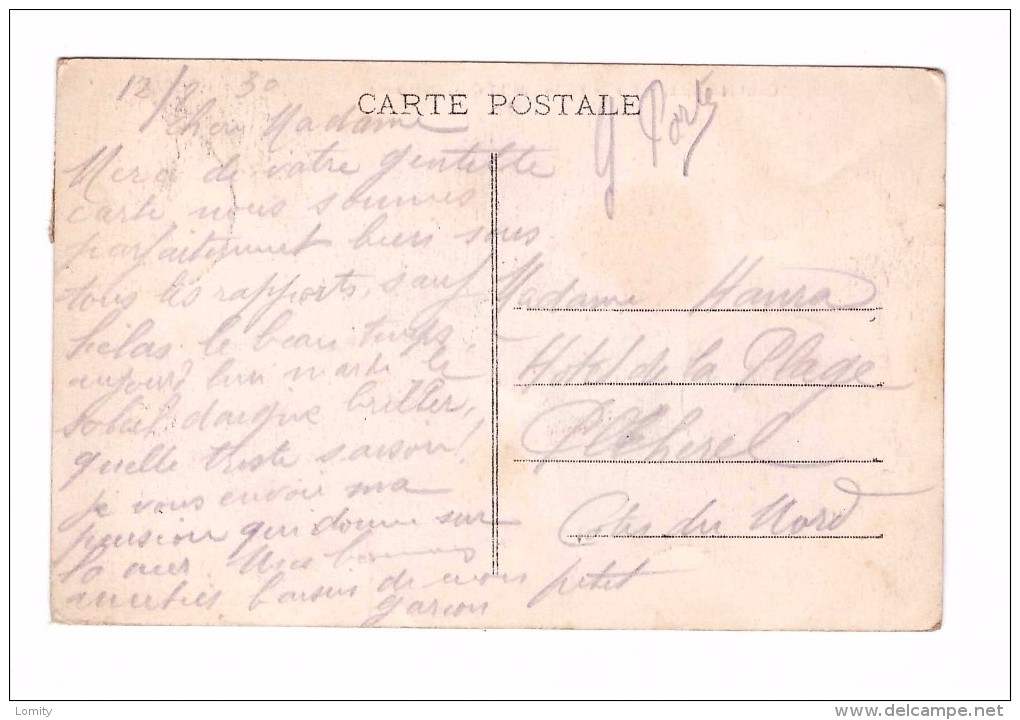 12/ 30
CARTE POSTALE
Chère Madame
Merci de votre gentille
carte nous sommes
parfaitement bien sous
tous les rapports, sauf
hélas le beau temps,
aujourd'hui mardi le
soleil daigne briller,
quelle triste saison!
je vous envoie ma
pension qui donne sur
la mer. Mes bonnes
amitiés, baisers de mon petit
garçon
Madame Hanra
Hotel de la Plage
Plehérel
Côtes du Nord
Lomity
www.delcampe.net